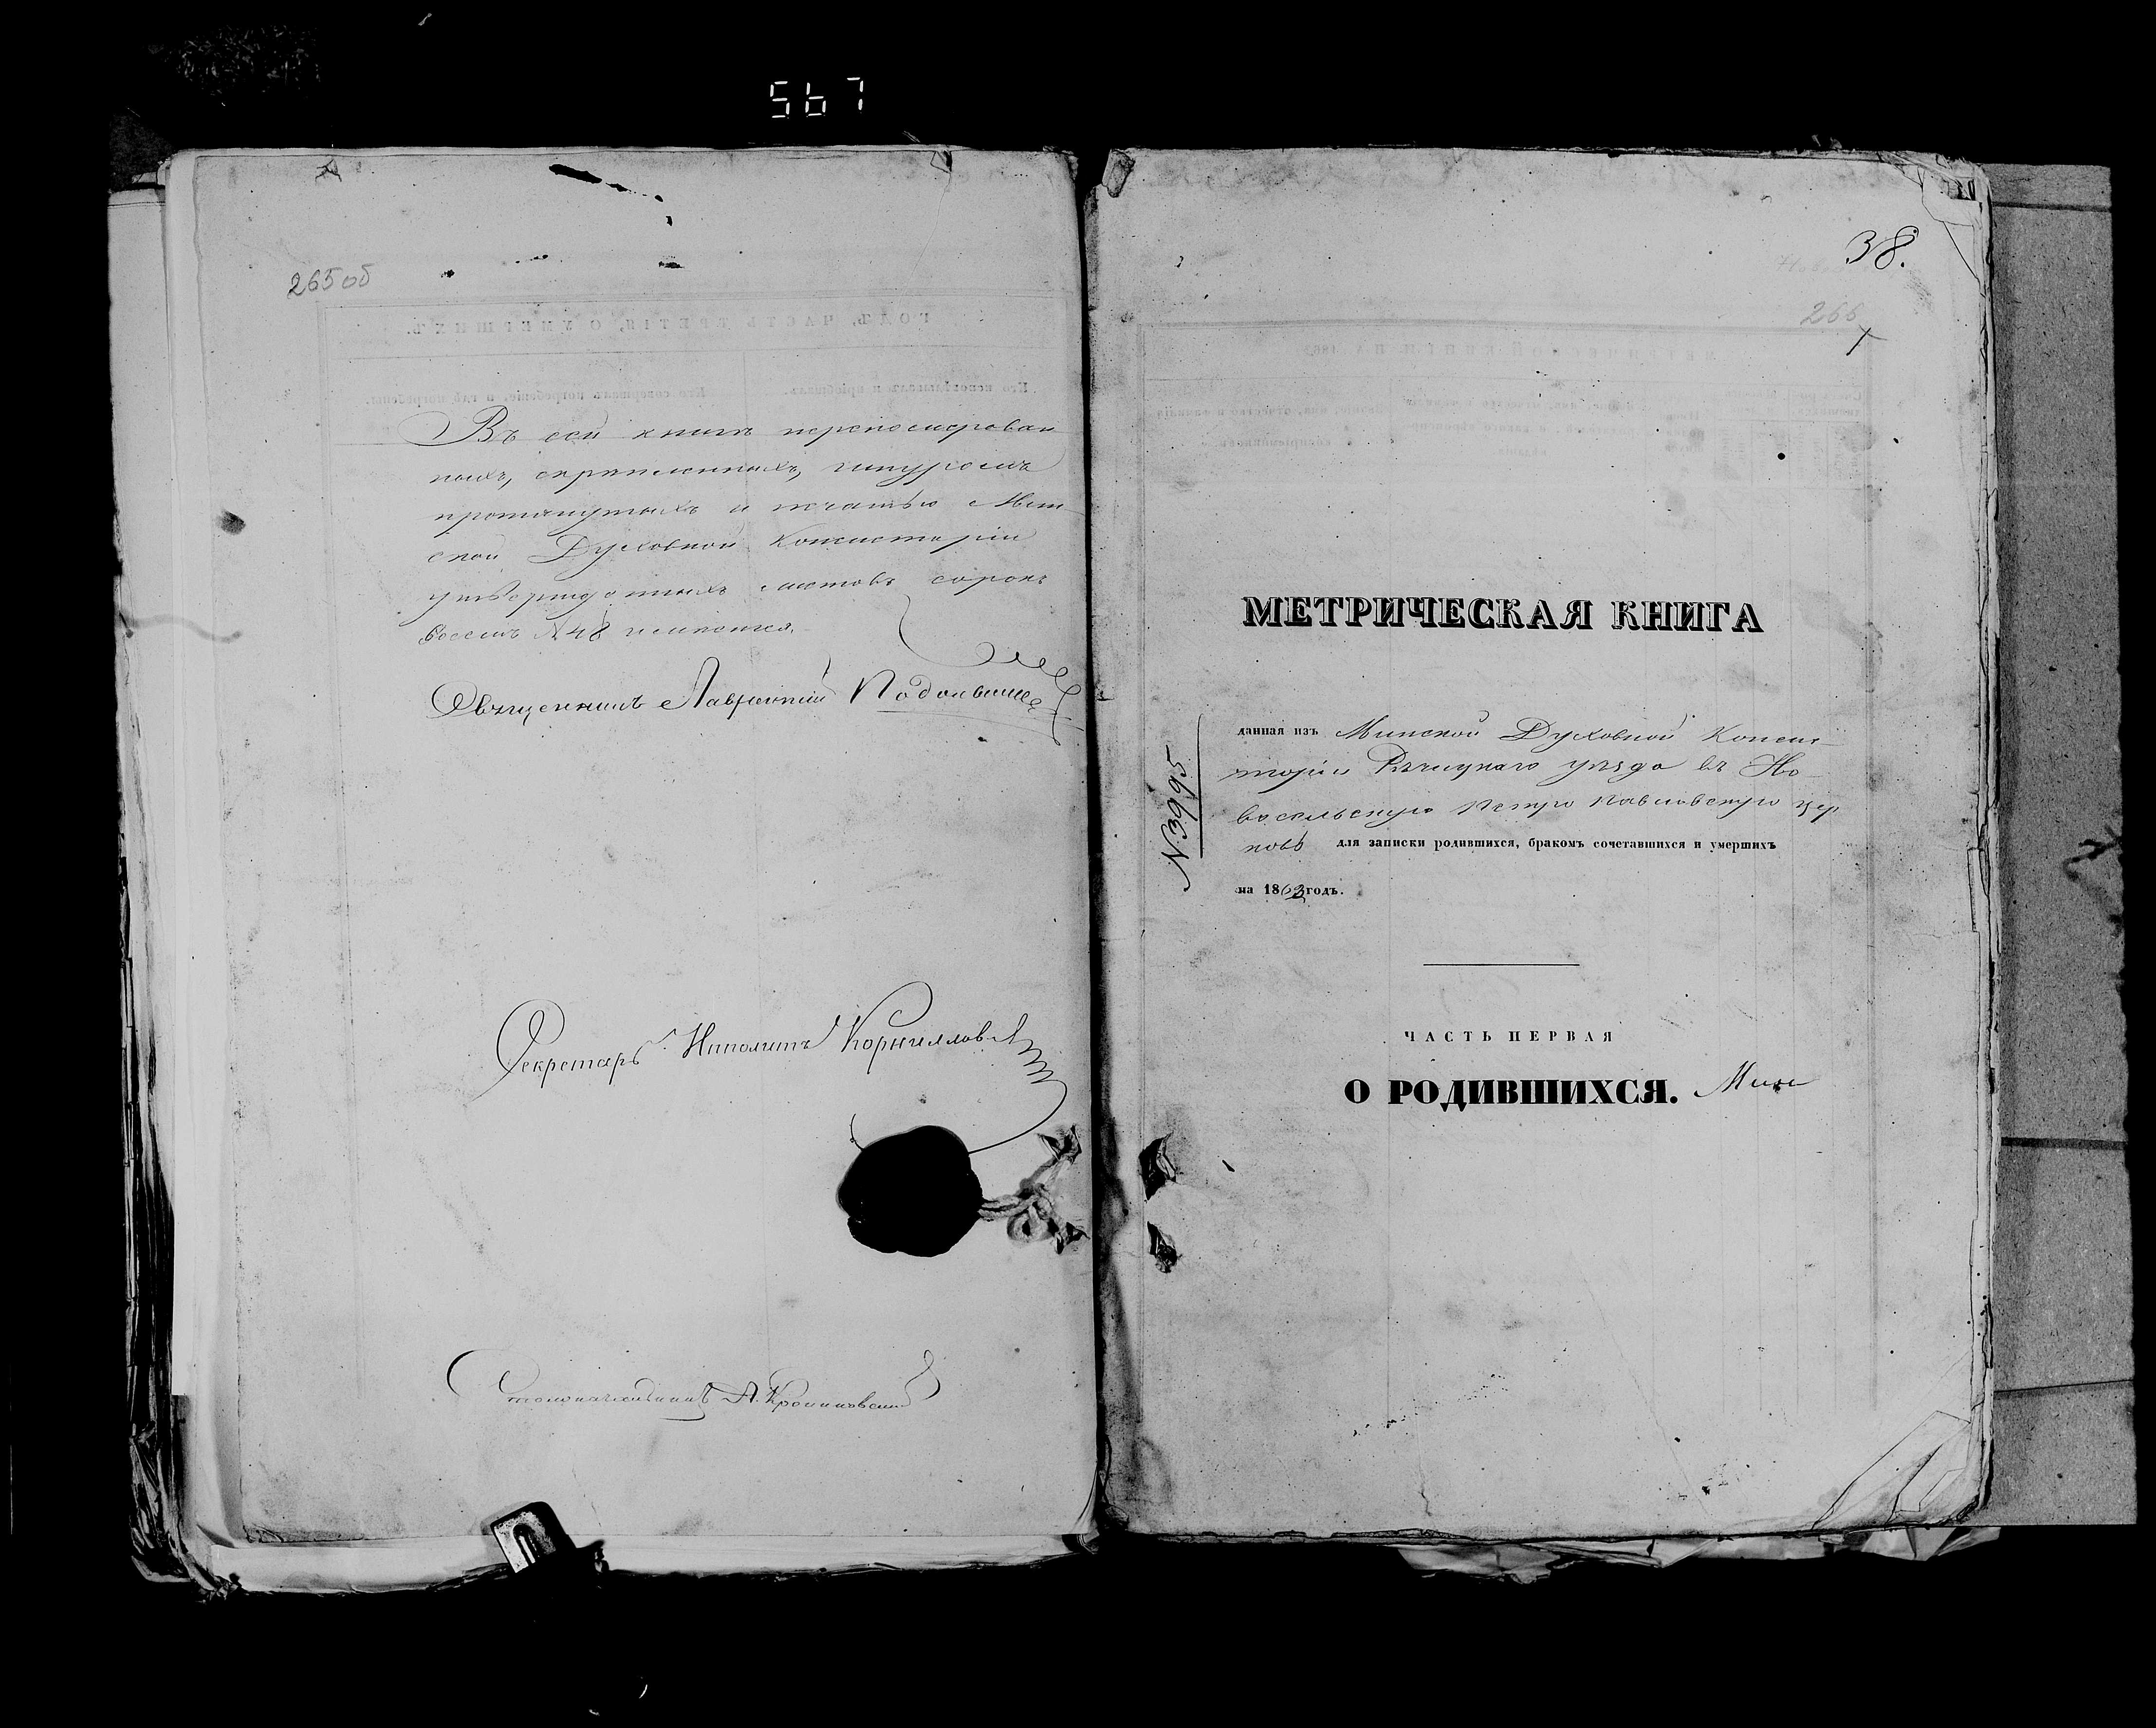 567
265об
Въ сей книгѣ перенумерован
ныхъ, скрѣпленныхъ, шнуромъ
протянутыхъ и печатью Мин
ской Духовной Консисторіи
утвержденныхъ листовъ сорокъ
восемь № 48
Священникъ Лаврентій
Секретарь Ипполитъ Корниллов
Столоначальникъ А.
38.
266
1
МЕТРИЧЕСКАЯ КНИГА
№3995
данная изъ Минской Духовной Консис-
торіи Рѣчицкаго уѣзда въ Но-
восельскую Петро Павловскую цер
ковь для записки родившихся, бракомъ сочетавшихся и умершихъ
на 1863 годъ.
ЧАСТЬ ПЕРВАЯ
О РОДИВШИХСЯ. Минс